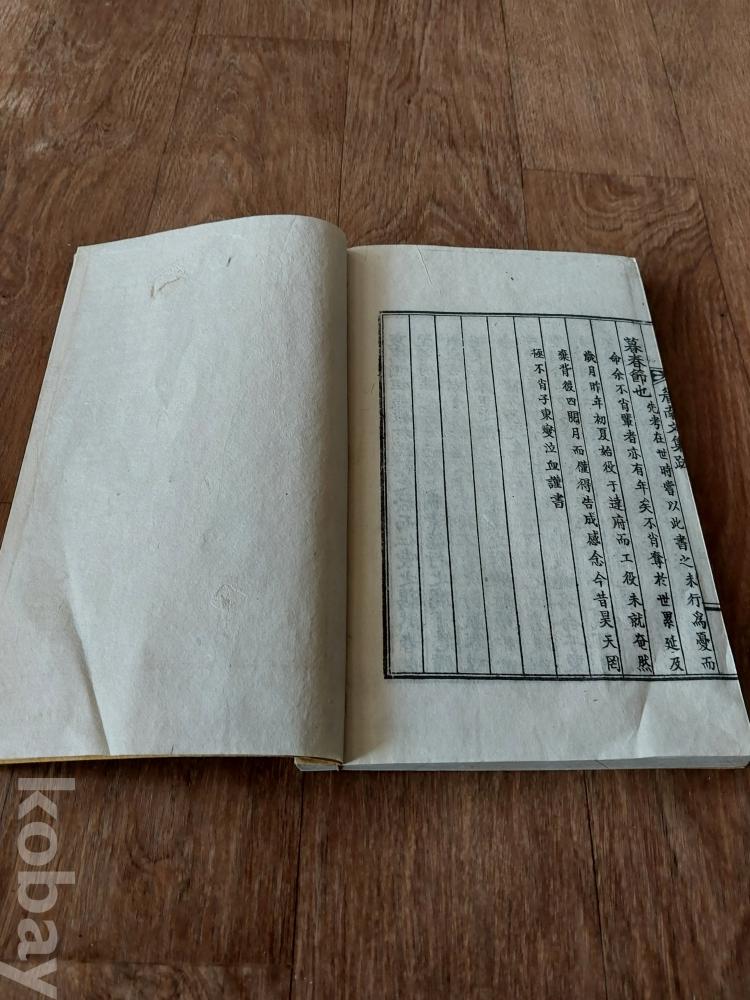 文集跋
暮春節也
先考在世時嘗以此書之未行爲憂而
命余不肖輩者亦有年矣不肖奪於世累延及
歲月昨年初夏始役于達府而工役未就奄然
棄背後四閱月而僅得告成感念今昔昊天罔
極不肖子東燮泣血謹書
kobay